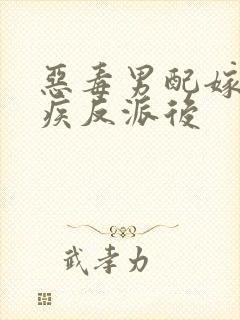 惡毒男配嫁
疾反派後
武孝力